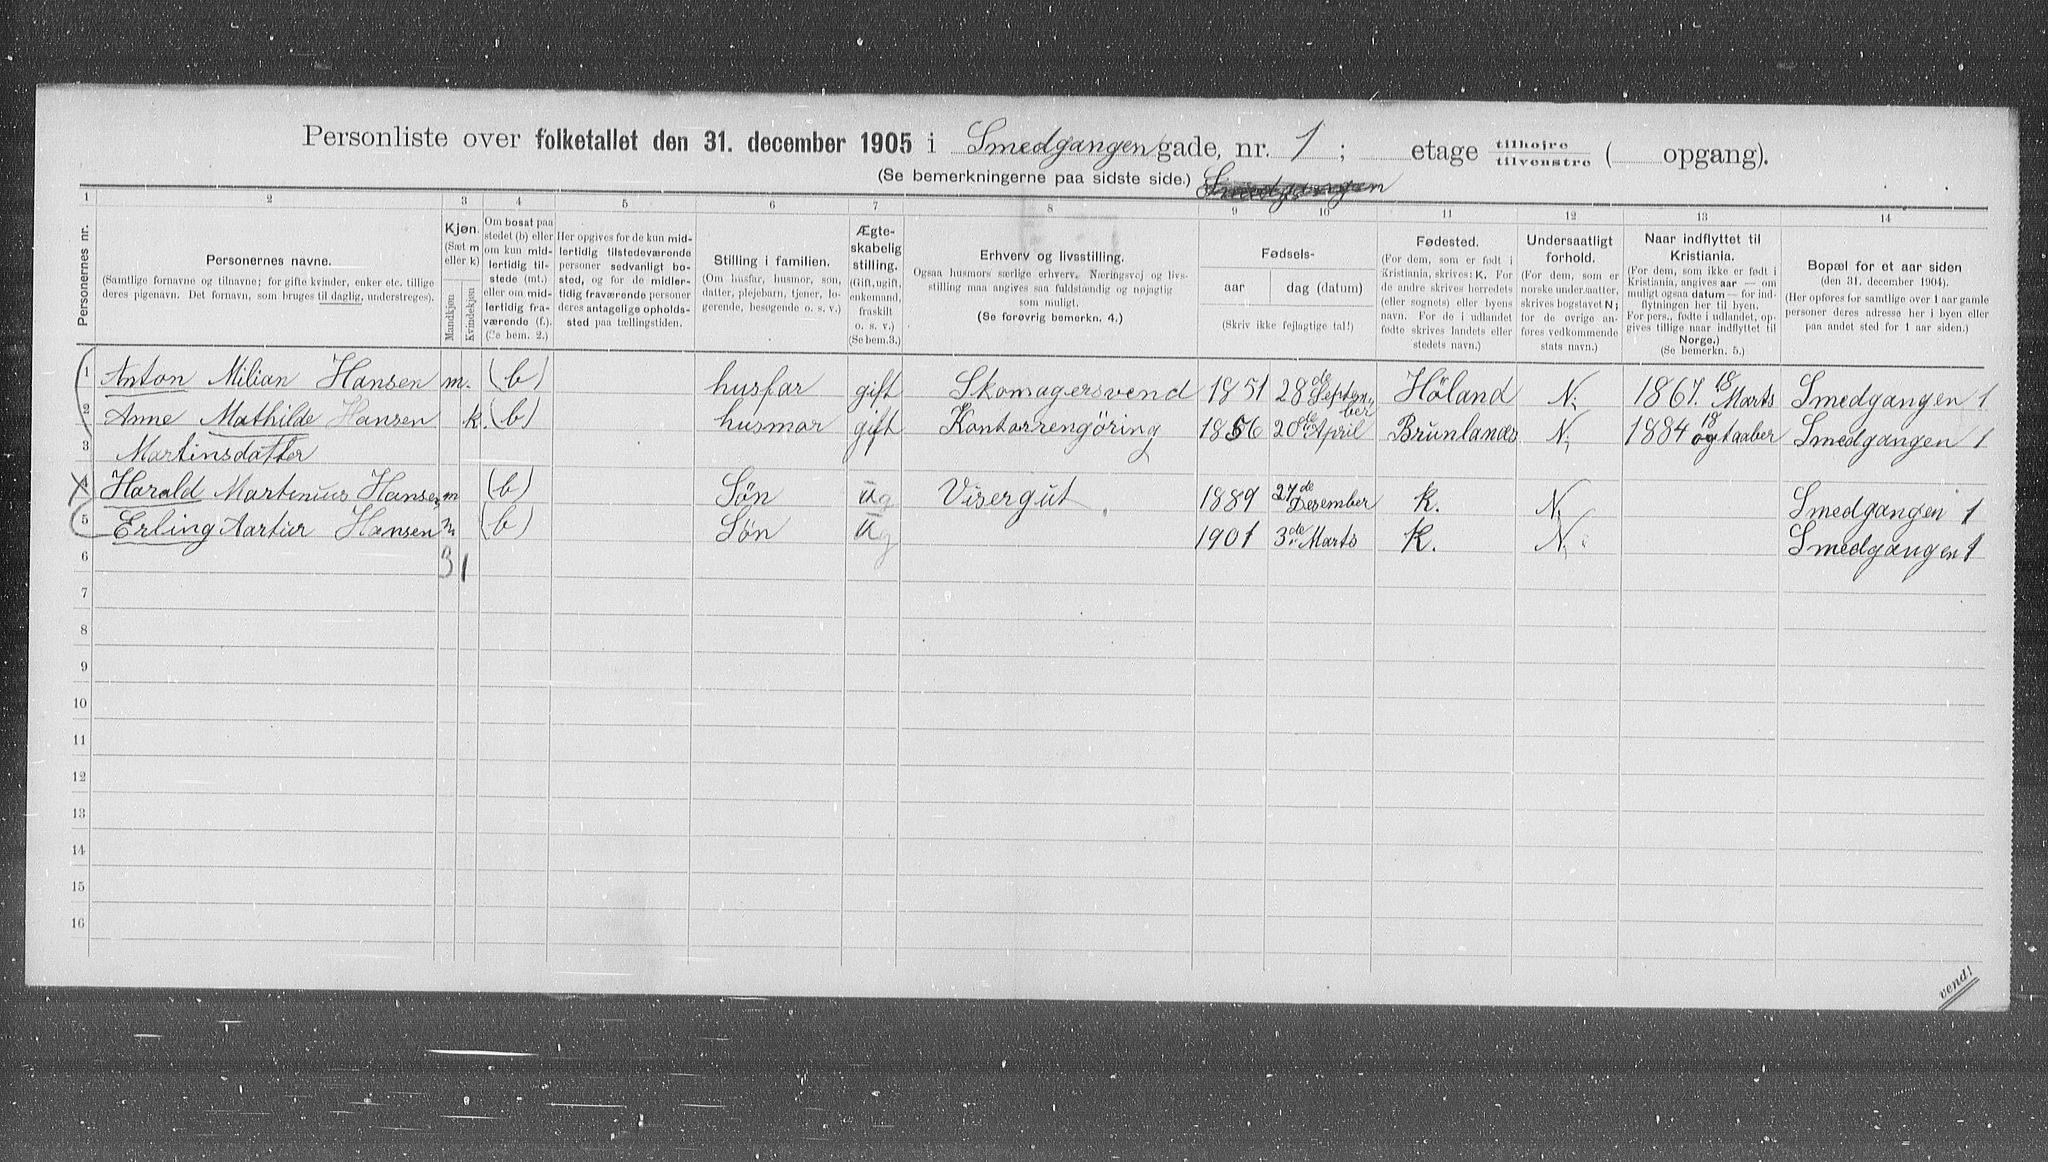 Personliste over folketallet den 31. december 1905 i Smedgangen gade, nr. 1 ; etage tilhøjre tilvenstre ( opgang).
(Se bemerkningerne paa sidste side.) Smedgangen
1 2 3 4 5 6 7 8 9 10 11 12 13 14
Personernes nr.
Personernes navne.
(Samtlige fornavne og tilnavne; for gifte kvinder, enker etc. tillige
deres pigenavn. Det fornavn, som bruges til daglig, understreges).
Kjøn.
(Sæt m
eller k)
Mandkjøn
Kvindekjøn
Om bosat paa
stedet (b) eller
om kun mid-
lertidig til-
stede (mt.)
eller om mid-
lertidig fra-
værende (f.).
(Se bem. 2.)
Her opgives for de kun mid-
lertidig tilstedeværende
personer sedvanligt bo-
sted, og for de midler-
tidig fraværende personer
deres antagelige opholds-
sted paa tællingstiden.
Stilling i familien.
(Om husfar, husmor, søn,
datter, plejebarn, tjener, lo-
gerende, besøgende o. s. v.)
Ægte-
skabelig
stilling.
(Gift, ugift,
enkemand,
fraskilt
o. s. v.)
(Se bem.3.)
Erhverv og livsstilling.
Ogsaa husmors særlige erhverv. Næringsvej og livs-
stilling maa angives saa fuldstændig og nøjagtig
som muligt.
(Se forøvrig bemerkn. 4.)
Fødsels-
aar dag (datum)
(Skriv ikke fejlagtige tal!)
Fødested.
(For dem, som er født i
Kristiania, skrives: K. For
de andre skrives herredets
(eller sognets) eller byens
navn. For de i udlandet
fødte skrives landets eller
stedets navn.)
Undersaatligt
forhold.
(For dem, som er
norske undersaatter,
skrives bogstavet N;
for de øvrige an-
føres vedkommende
stats navn.)
Naar indflyttet til
Kristiania.
(For dem, som ikke er født i
Kristiania, angives aar — om
muligt ogsaa datum — for ind-
flytningen her til byen.
For pers., fødte i udlandet, op-
gives tillige naar indflyttet til
Norge.)
(Se bemerkn. 5.)
Bopæl for et aar siden
(den 31. december 1904).
(Her opføres for samtlige over 1 aar gamle
personer deres adresse her i byen eller
paa andet sted for 1 aar siden.)
1 Anton Milian Hansen m. (b) husfar gift Skomagersvend 1851 28de September Höland N; 1867. 18 Marts Smedgangen 1
2 Anne Mathilde Hansen k. (b) husmor gift Kontorrengöring 1856 20de April Brunlanæs N; 1884 18 ogtaaber Smedgangen 1
3 Martinsdatter
4 Harald Martinius Hansen m (b) Sön ug Visergut 1889 27de Desember K. N, Smedgangen 1
5 Erling Aartur Hansen m (b) Sön ug 1901 3de Marts K. N. Smedgangen 1
6 3 1
7
8
9
10
11
12
13
14
15
16
vend!